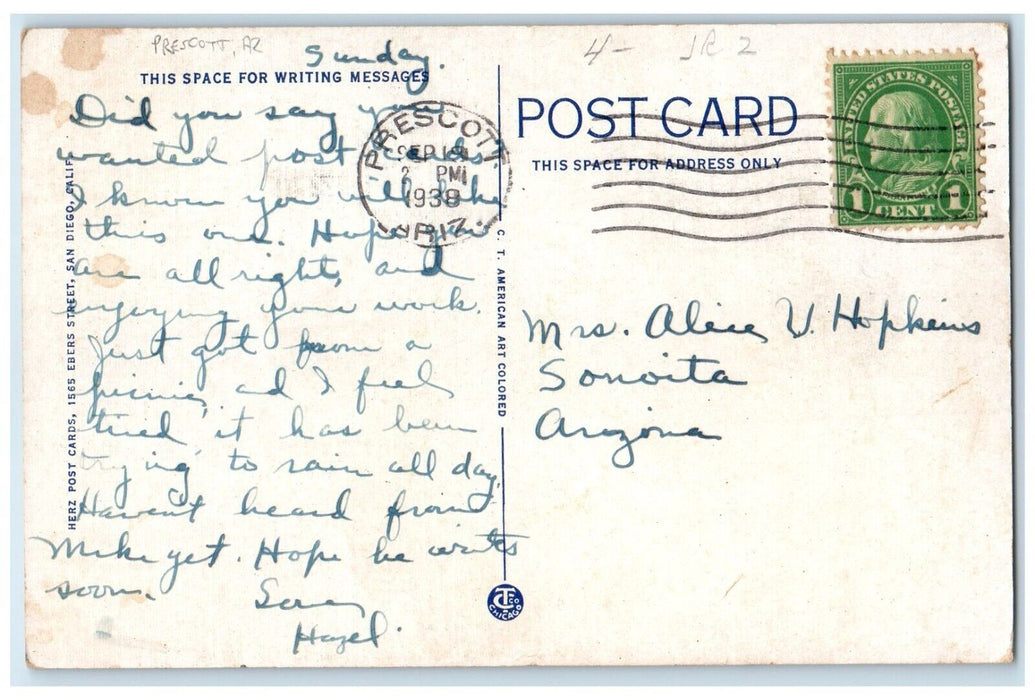 PRESCOTT, AZ
Sunday.
THIS SPACE FOR WRITING MESSAGES
Did you say you
wanted post cards.
I know you will like
this one. Hope you
are all right, and
enjoying your work.
Just got from a
picnic, ad I feel
tired it has been
trying to rain all day.
Haven't heard from
Mike yet. Hope he writes
soon.
Hazel.
HERZ POST CARDS, 1565 EBERS STREET, SAN DIEGO, CALIF.
C. T. AMERICAN ART COLORED
CT CO
CHICAGO
4- JR 2
POST CARD
THIS SPACE FOR ADDRESS ONLY
PRESCOTT
SEP
PM
ARIZ.
UNITED STATES POSTAGE
FRANKLIN
1 CENT 1
Mrs. Alice V. Hopkins
Sonoita
Arizona